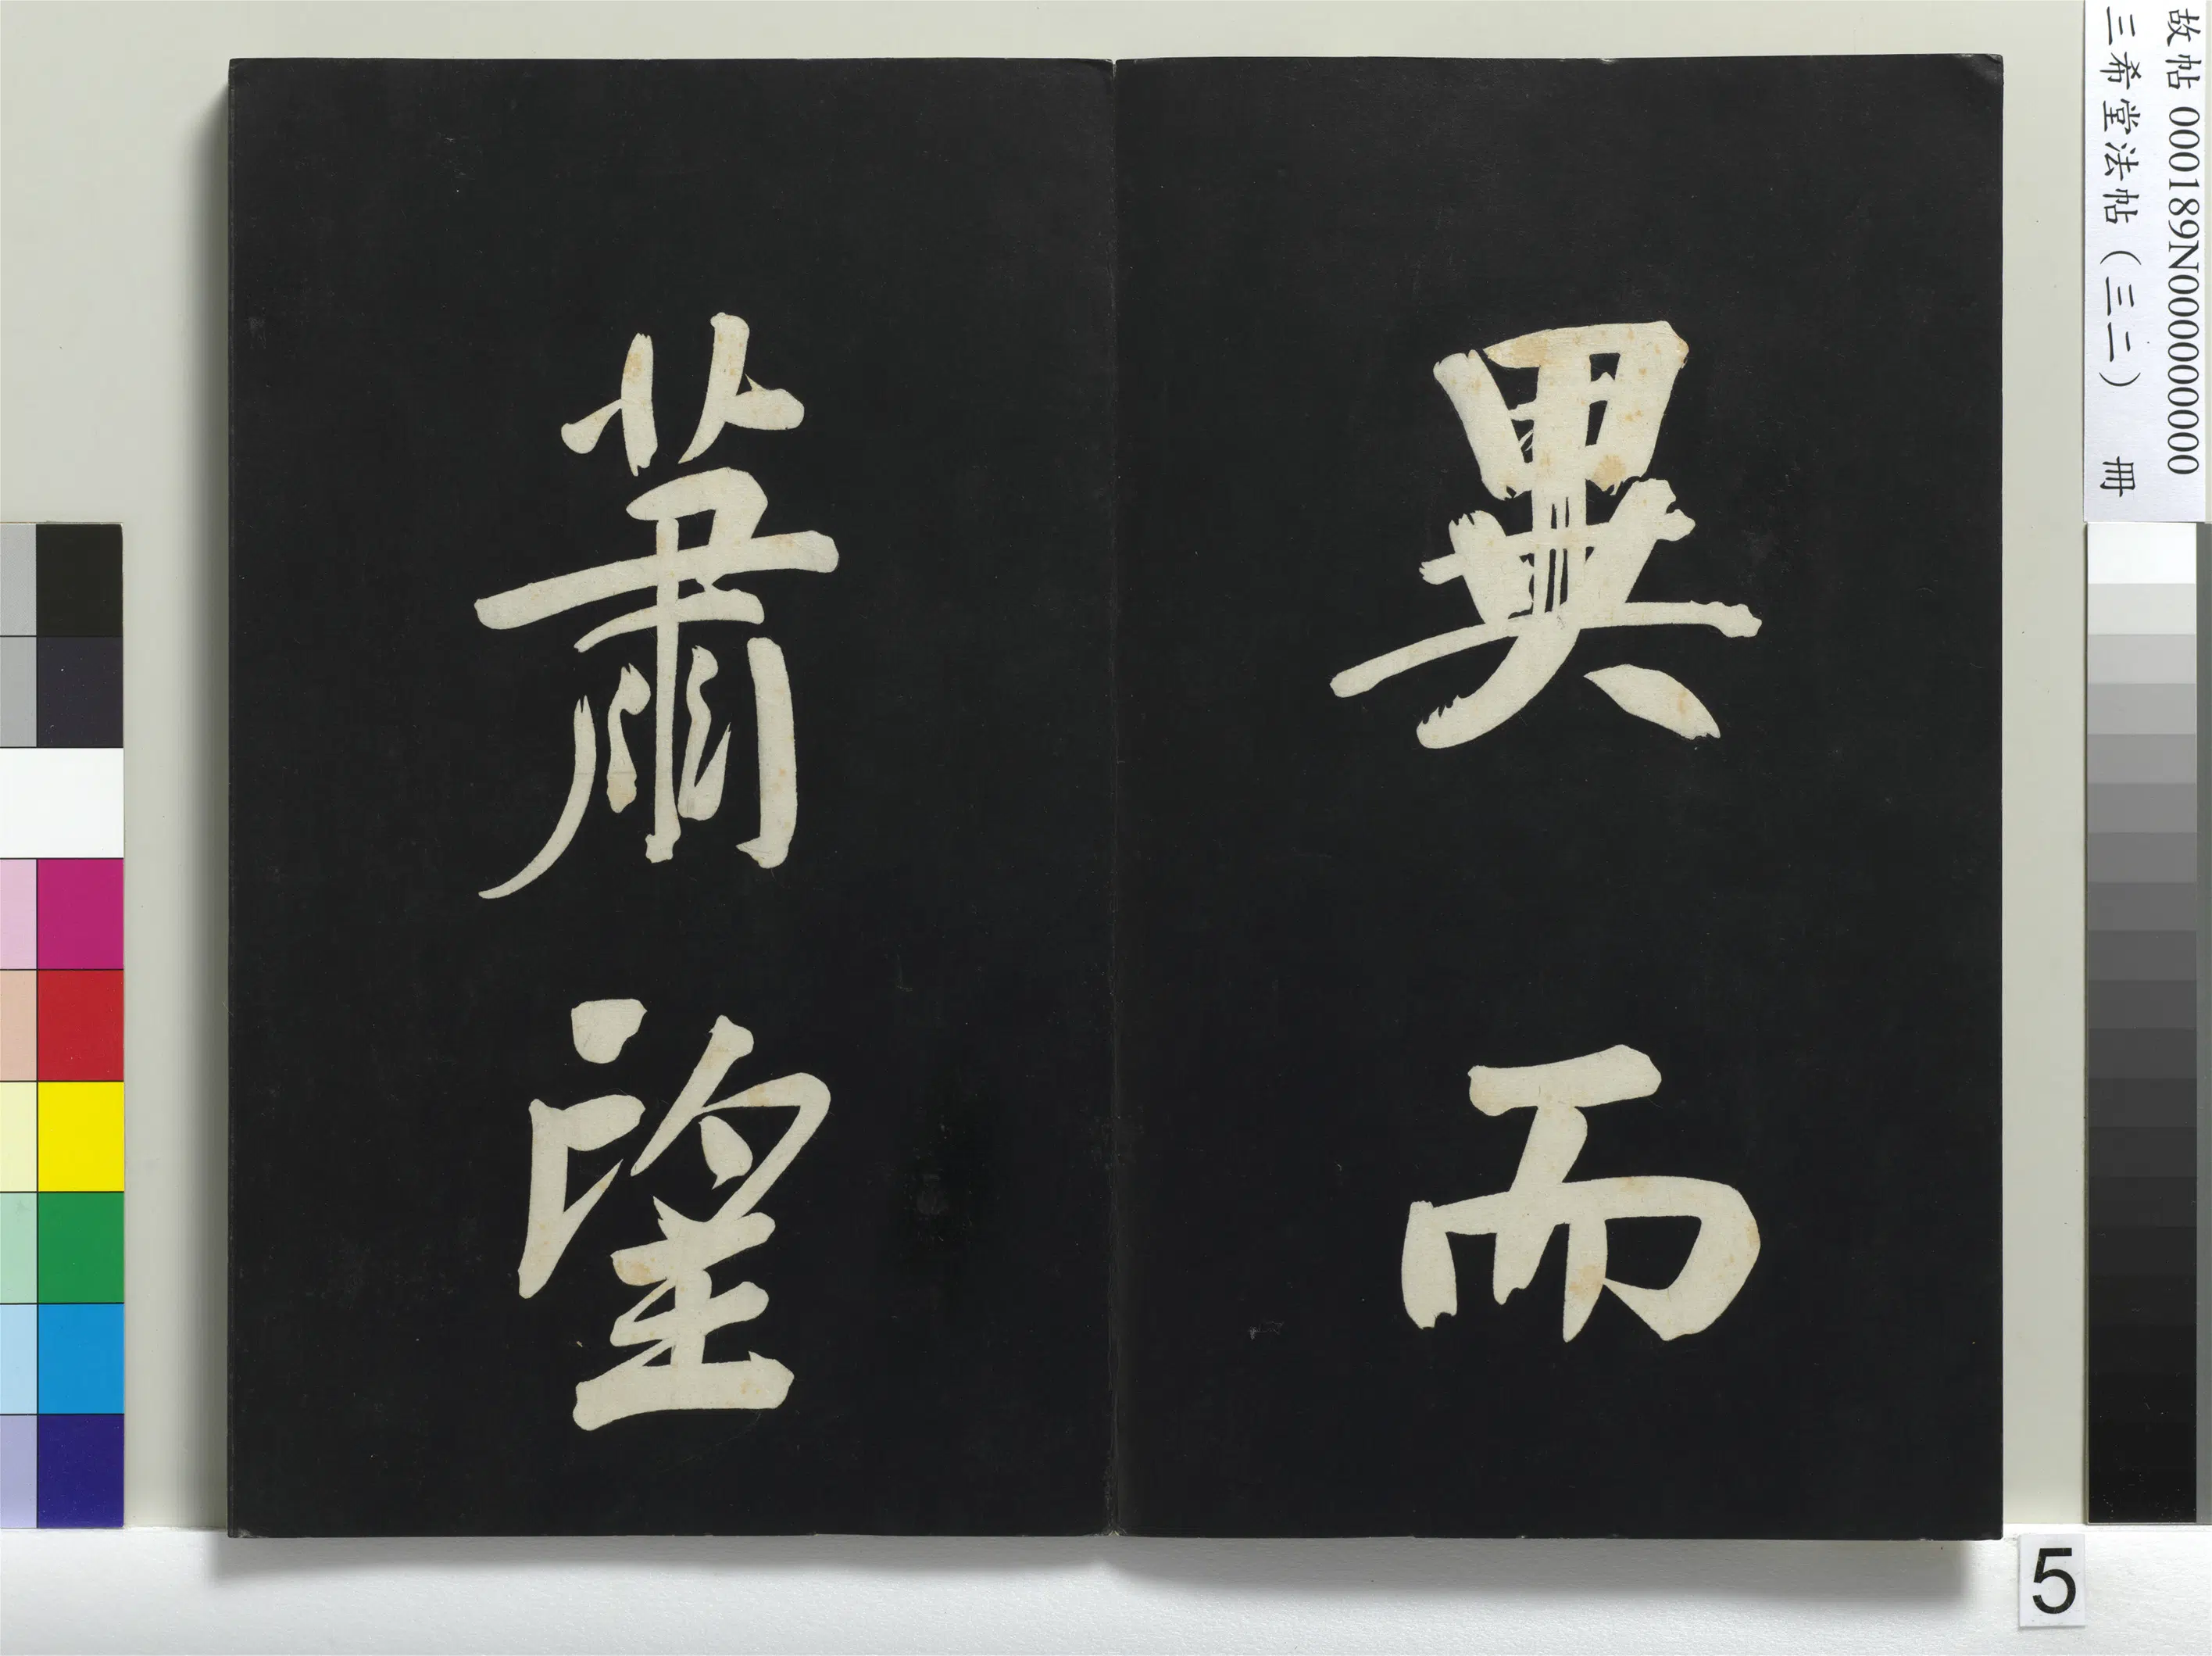 異而
蕭望
故帖 000189N000000000
三希堂法帖（三二） 冊
5